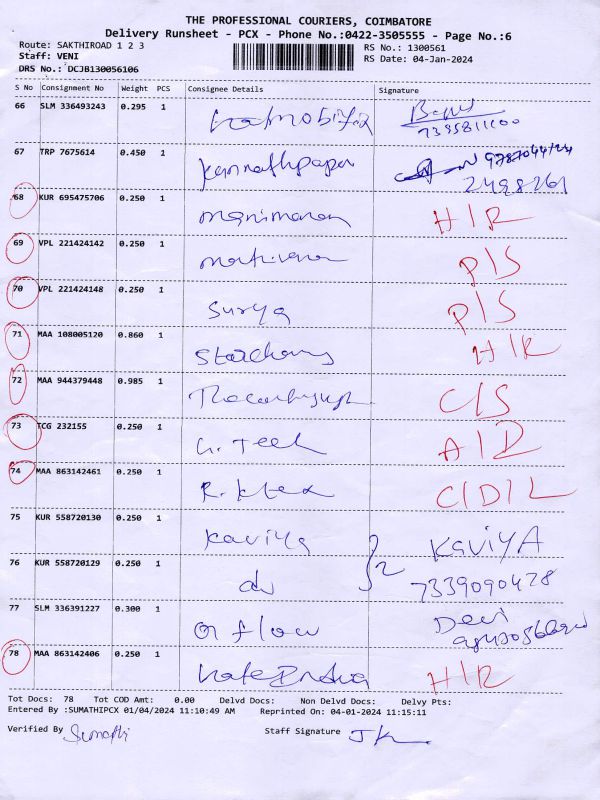 THE PROFESSIONAL COURIERS, COIMBATORE
Delivery Runsheet - PCX - Phone No.:0422-3505555 - Page No.:6
Route: SAKTHIROAD 1 2 3 RS No.: 1300561
Staff: VENI RS Date: 04-Jan-2024
DRS No.: DCJB130056106
S No Consignment No Weight PCS Consignee Details Signature
66 SLM 336493243 0.295 1
67 TRP 7675614 0.450 1
68 KUR 695475706 0.250 1 manimaran H/R
69 VPL 221424142 0.250 1 P/S
70 VPL 221424148 0.250 1 Surya P/S
71 MAA 108005120 0.860 1 H/R
72 MAA 944379448 0.985 1 C/S
73 TCG 232155 0.250 1 A/D
74 MAA 863142461 0.250 1 C/D/L
75 KUR 558720130 0.250 1 Kaviya KaviyA
76 KUR 558720129 0.250 1 do } 2 7339090478
77 SLM 336391227 0.300 1 flow Devi
78 MAA 863142406 0.250 1 India H/R
Tot Docs: 78 Tot COD Amt: 0.00 Delvd Docs: Non Delvd Docs: Delvy Pts:
Entered By :SUMATHIPCX 01/04/2024 11:10:49 AM Reprinted On: 04-01-2024 11:15:11
Verified By Sumathi Staff Signature